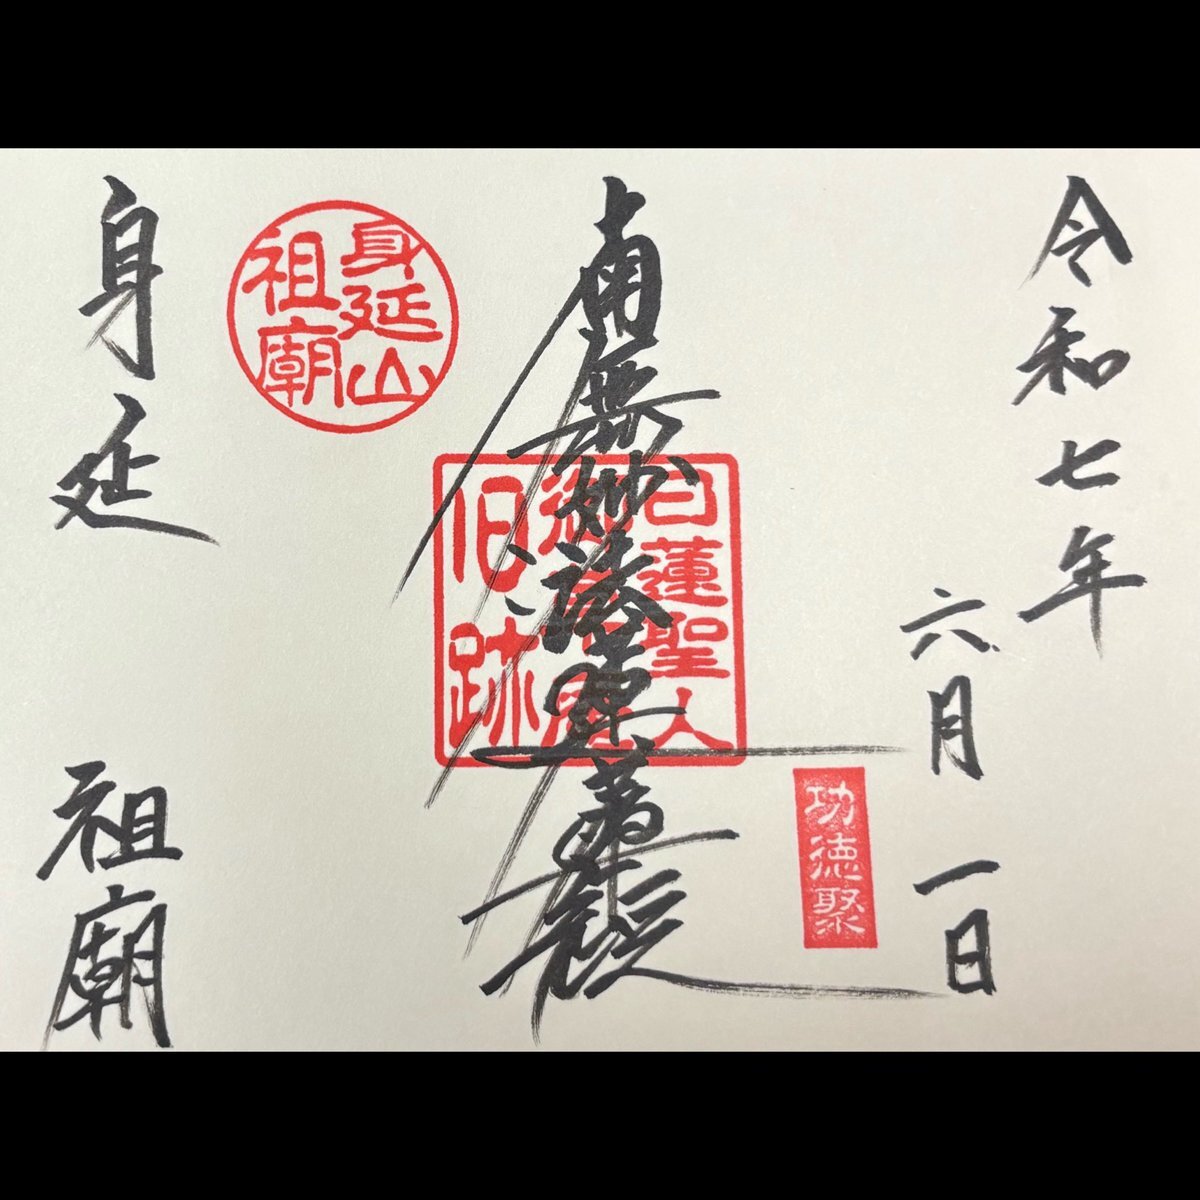 令和七年
六月一日
功徳聚
南無妙法蓮華経
日蓮聖人
御草庵
旧跡
身延山
祖廟
身延 祖廟